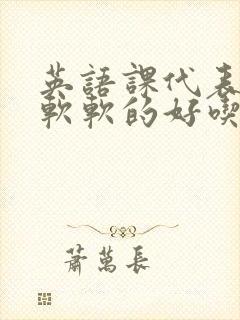 英語課代表
軟軟的好喫
蕭萬長